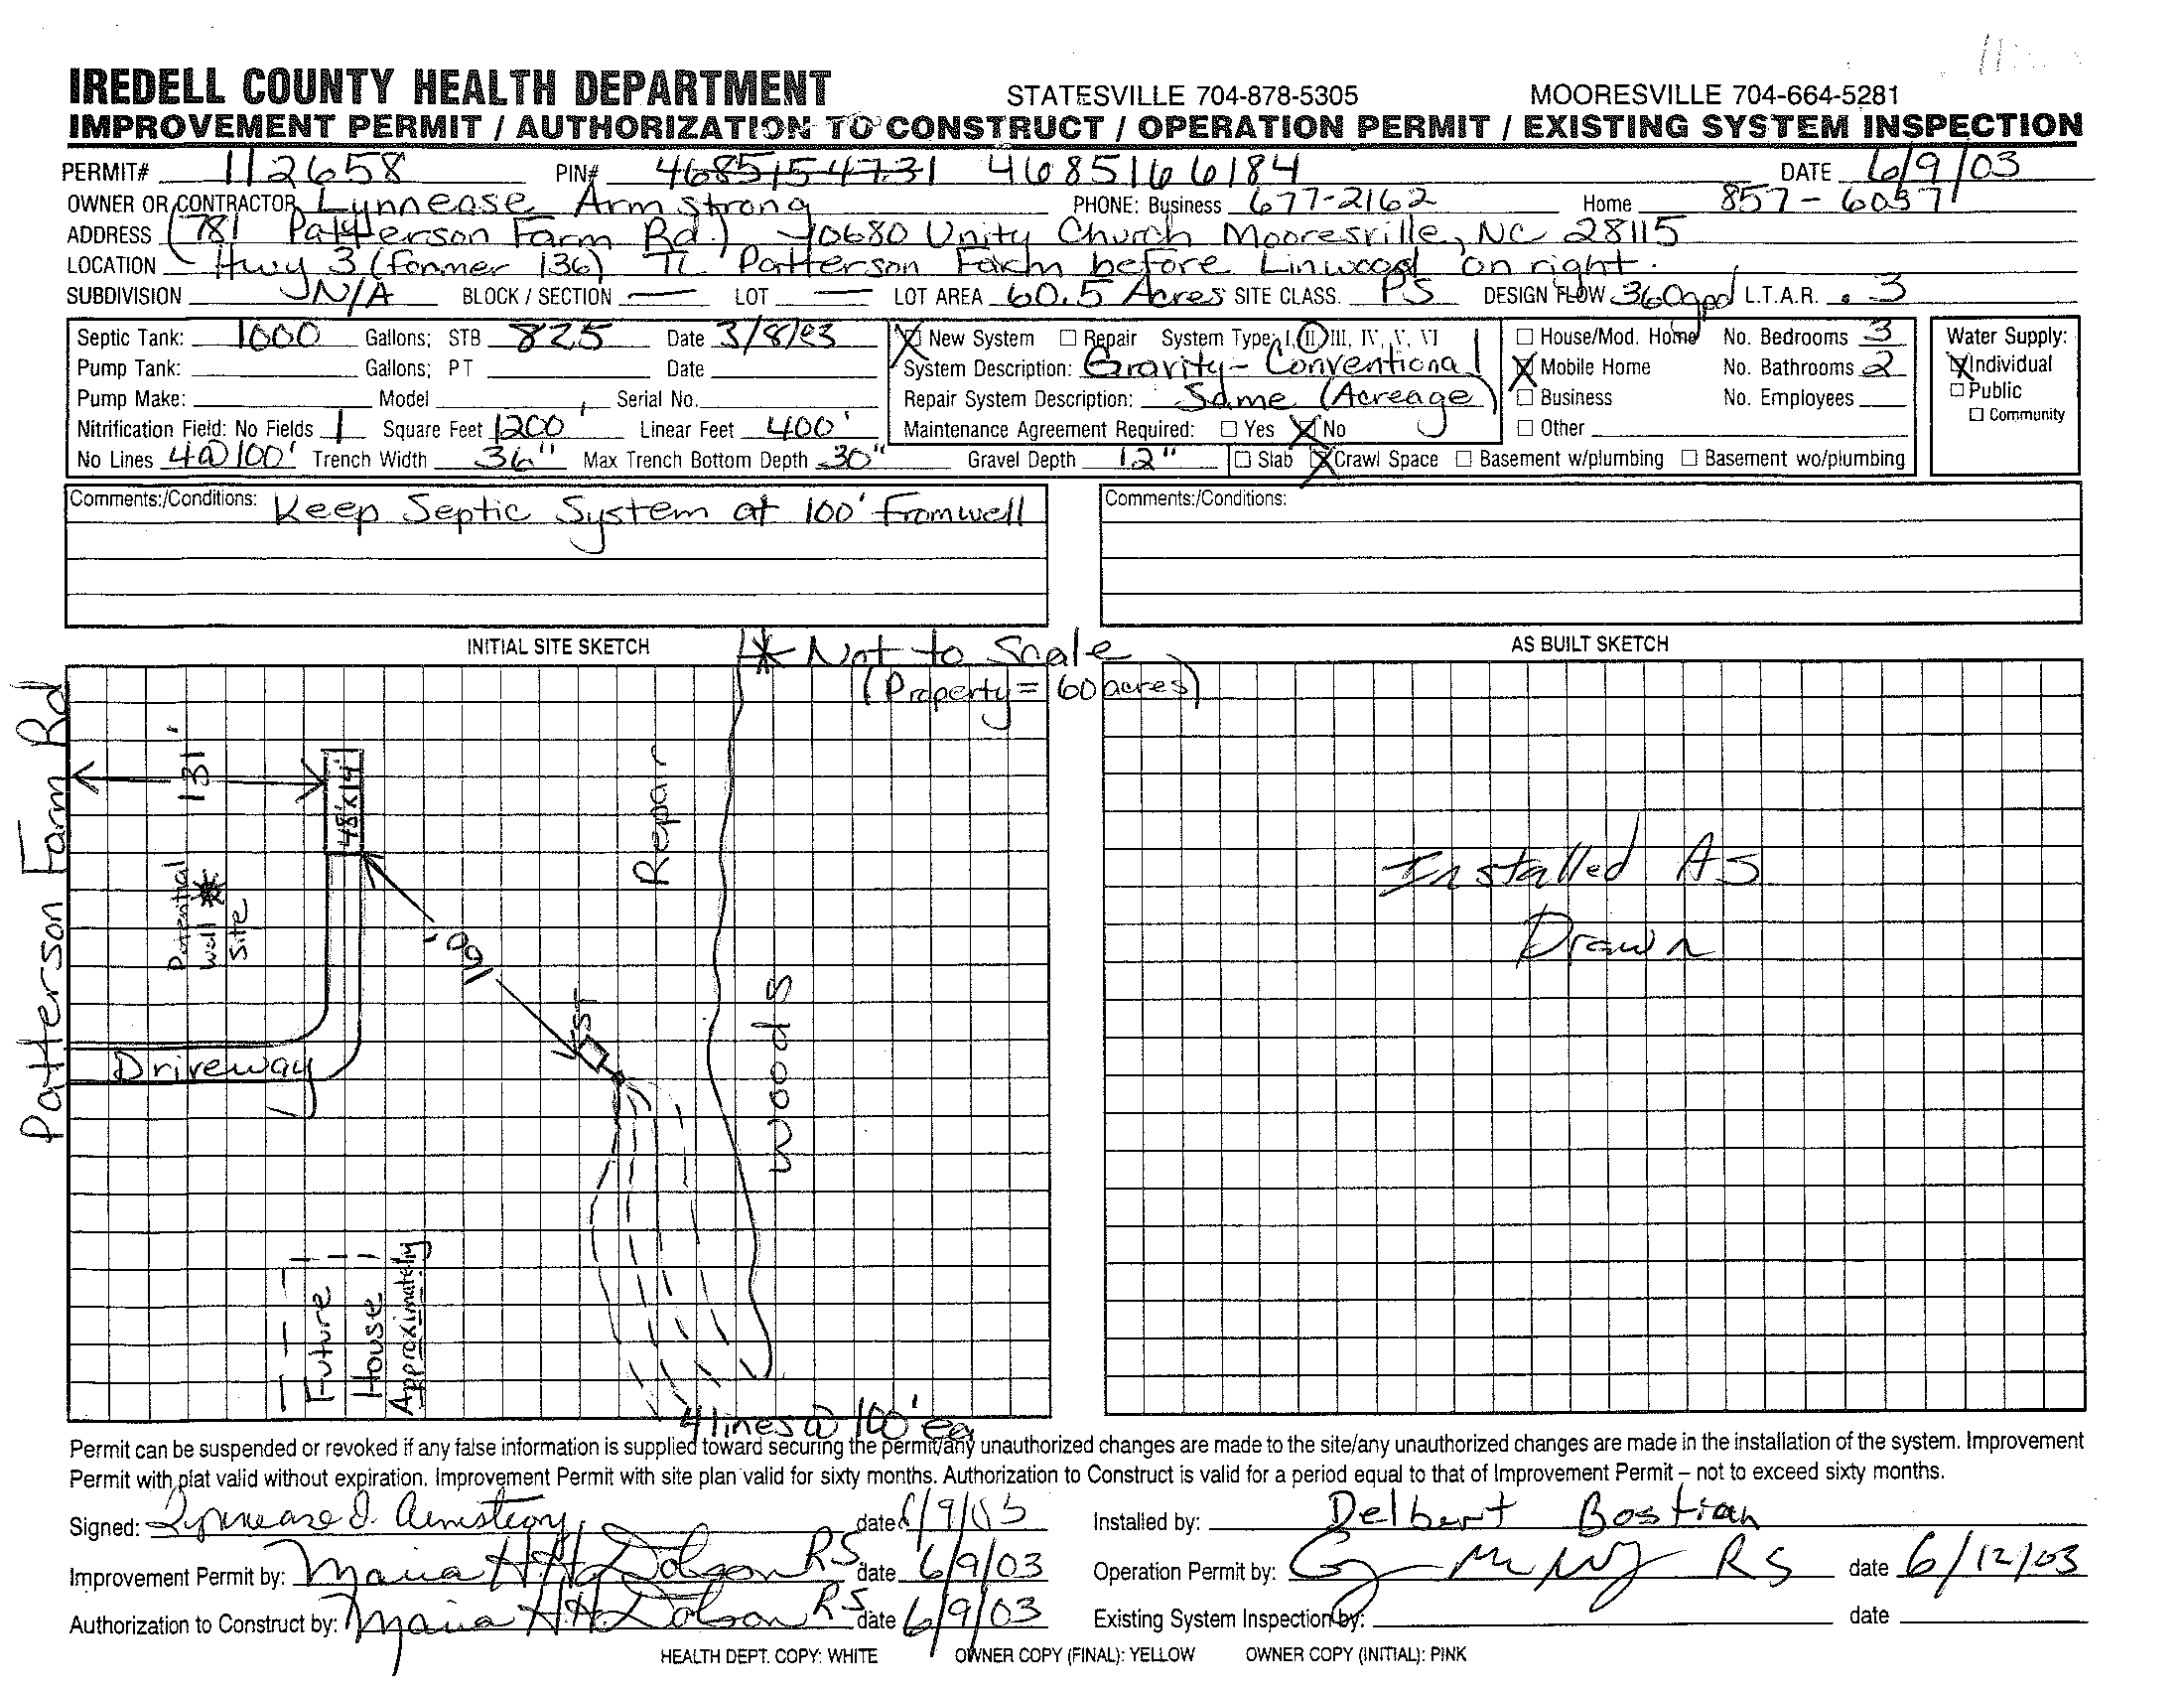 IREDELL COUNTY HEALTH DEPARTMENT STATESVILLE 704-878-5305 MOORESVILLE 704-664-5281
IMPROVEMENT PERMIT / AUTHORIZATION TO CONSTRUCT / OPERATION PERMIT / EXISTING SYSTEM INSPECTION
PERMIT# 112658 PIN# 4685154731 4685166184 DATE 6/9/03
OWNER OR CONTRACTOR Lynnease Armstrong PHONE: Business 677-2162 Home 857-6057
ADDRESS (781 Patterson Farm Rd.) 10680 Unity Church Mooresville, NC 28115
LOCATION Hwy 3 (former 136) TL Patterson Farm before Linwood on right.
SUBDIVISION N/A BLOCK / SECTION — LOT — LOT AREA 60.5 Acres SITE CLASS. PS DESIGN FLOW 360gpd L.T.A.R. .3
Septic Tank: 1000 Gallons; STB 825 Date 3/8/03 New System Repair System Type: I, II, III, IV, V, VI House/Mod. Home No. Bedrooms 3 Water Supply:
Pump Tank: Gallons; PT Date System Description: Gravity - Conventional Mobile Home No. Bathrooms 2 Individual
Pump Make: Model Serial No. Repair System Description: Same (Acreage) Business No. Employees Public
Nitrification Field: No Fields 1 Square Feet 1200' Linear Feet 400' Maintenance Agreement Required: Yes No Other Community
No Lines 4@100' Trench Width 36" Max Trench Bottom Depth 30" Gravel Depth 12" Slab Crawl Space Basement w/plumbing Basement wo/plumbing
Comments:/Conditions: Keep Septic System at 100' From well
Comments:/Conditions:
INITIAL SITE SKETCH
* Not to Scale
(Property = 60 acres)
AS BUILT SKETCH
Patterson Farm Rd
131'
48'x14'
Repair
Potential
well *
Site
100'
ST
Woods
Driveway
Future
House
Approximately
4 lines @ 100' ea
Installed As
Drawn
Permit can be suspended or revoked if any false information is supplied toward securing the permit/any unauthorized changes are made to the site/any unauthorized changes are made in the installation of the system. Improvement
Permit with plat valid without expiration. Improvement Permit with site plan valid for sixty months. Authorization to Construct is valid for a period equal to that of Improvement Permit – not to exceed sixty months.
Signed: Lynnease D. Armstrong date 6/9/03 Installed by: Delbert Bostian
Improvement Permit by: Maria H.H. Dobson RS date 6/9/03 Operation Permit by: RS date 6/12/03
Authorization to Construct by: Maria H.H. Dobson RS date 6/9/03 Existing System Inspection by: date
HEALTH DEPT. COPY: WHITE OWNER COPY (FINAL): YELLOW OWNER COPY (INITIAL): PINK